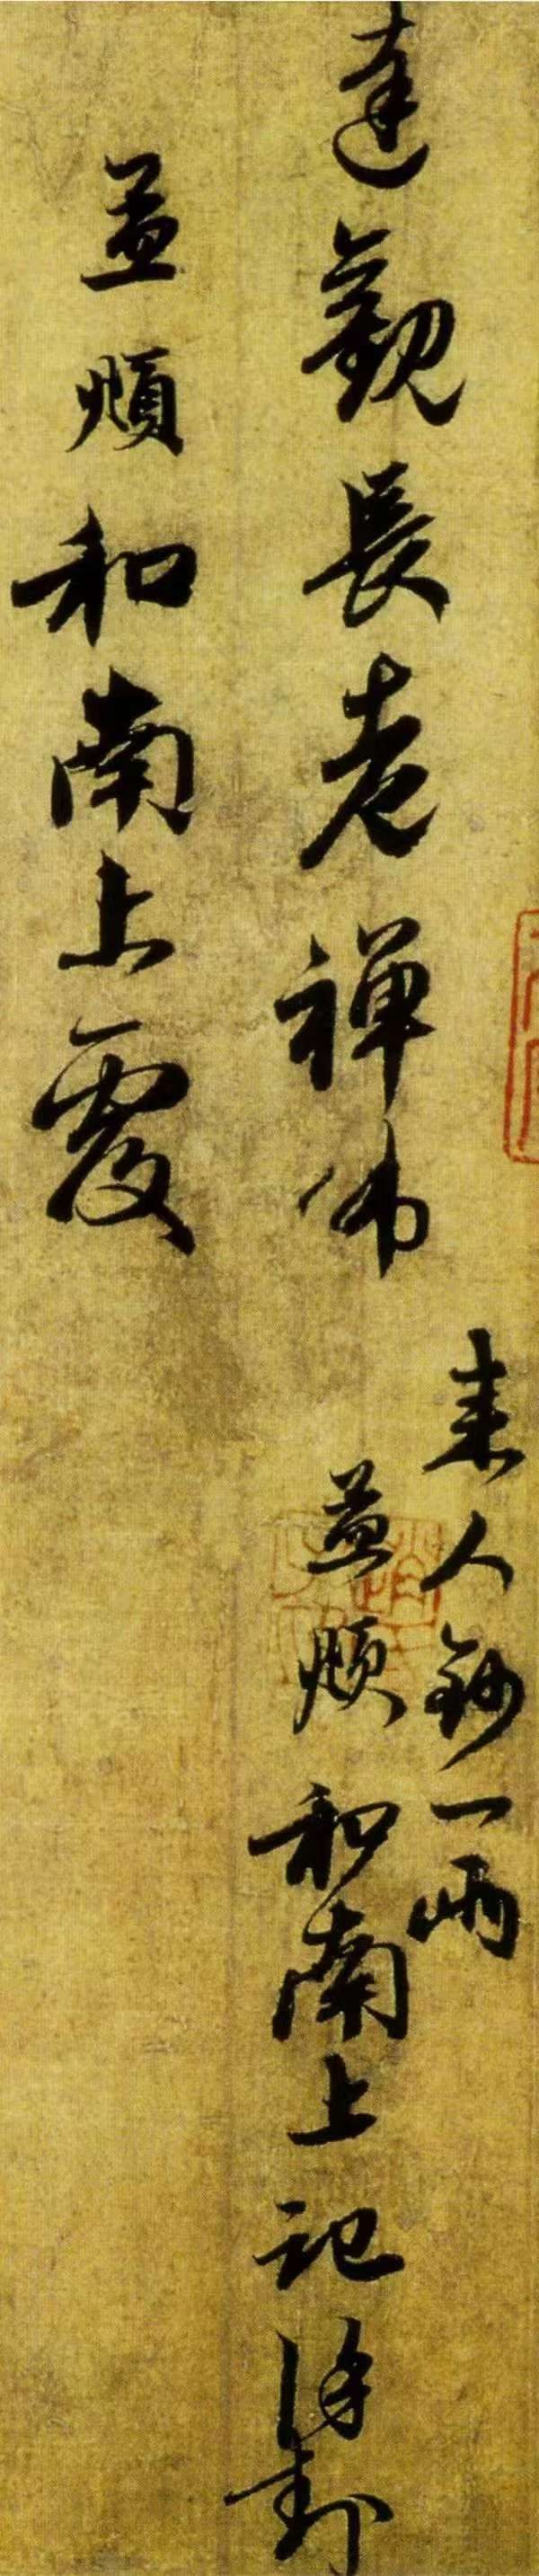 来人鈔一兩
達觀長老禪師 孟頫和南上記謹封
孟頫和南上覆